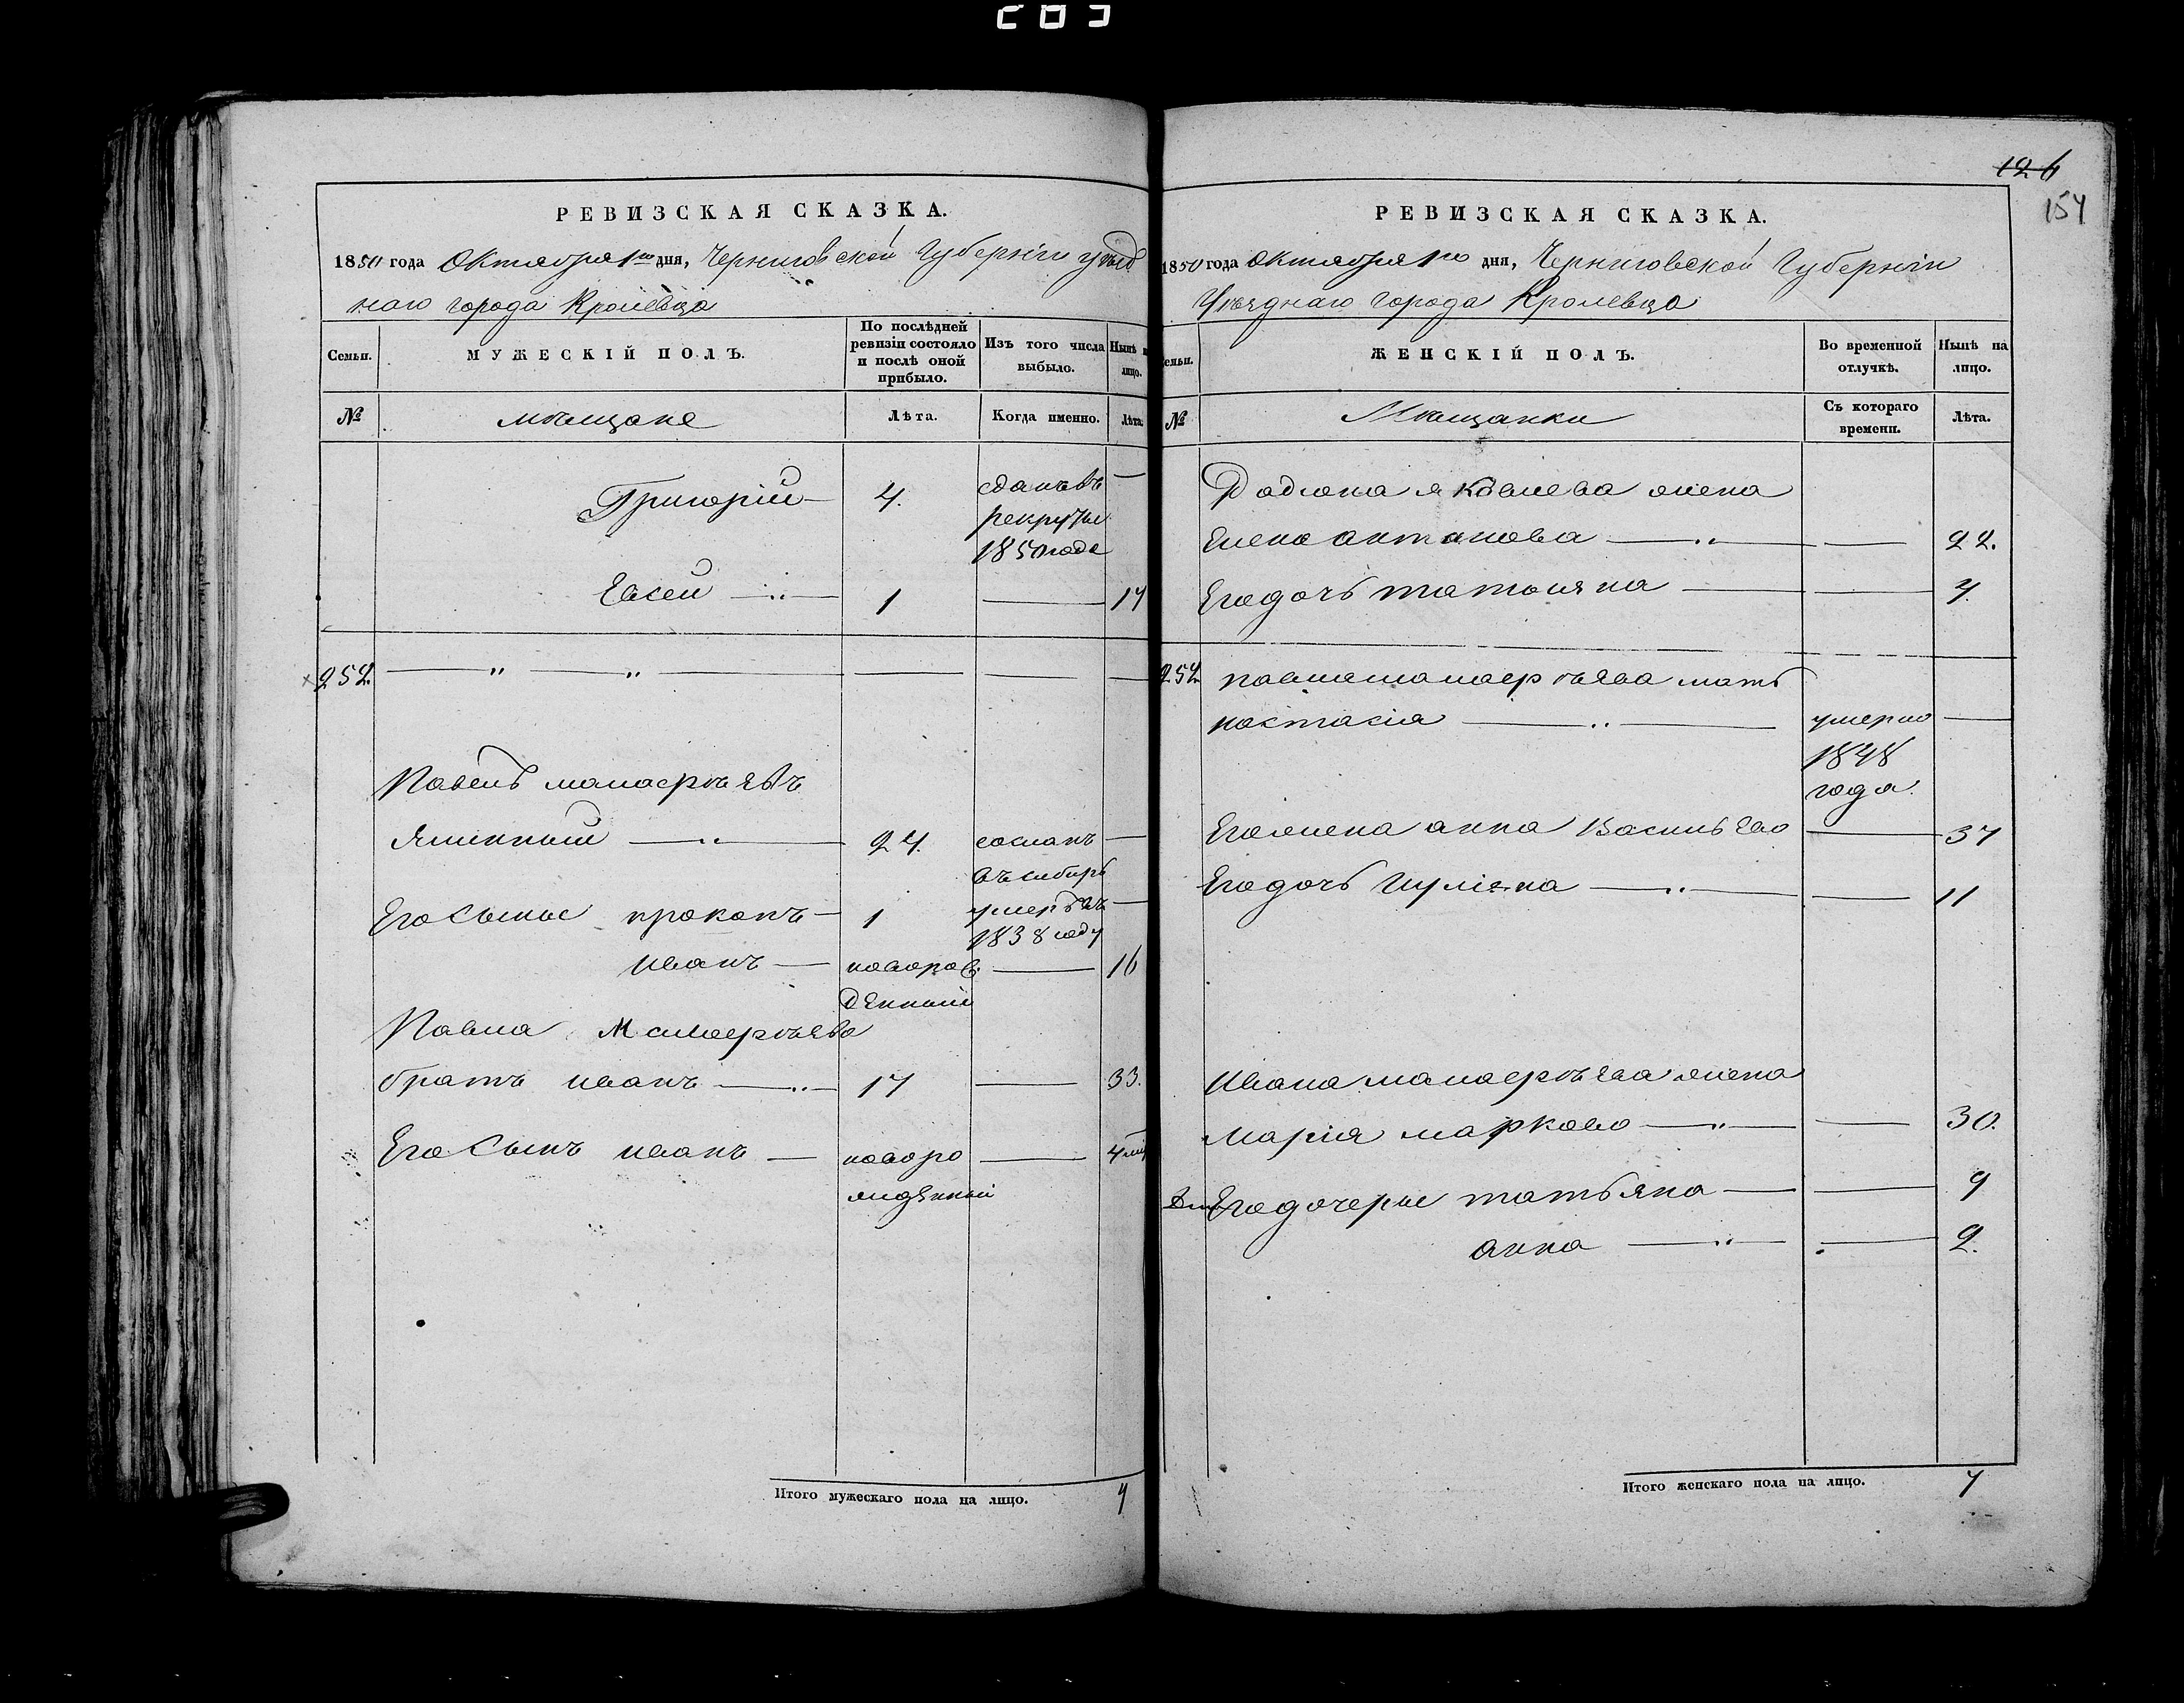 203
РЕВИЗСКАЯ СКАЗКА.
1850 года Октября 1го дня, Черниговской Губерніи уѣзд
наго города Кролевца
Семьи.
МУЖЕСКІЙ ПОЛЪ.
По послѣдней
ревизіи состояло
и послѣ оной
прибыло.
Изъ того числа
выбыло.
Нынѣ на
лицо.
№
мѣщане
Лѣта.
Когда именно.
Лѣта.
Григорій — 4. сданъ въ —
рекруты
1850 года
Евсей — 1 — 17
252.
Павелъ
24. сосланъ —
въ сибирь
Его Сынъе прокопъ — 1 умеръ въ —
1838 году
иванъ — новорож — 16
денный
Павла
братъ иванъ — 17 — 33.
Его Сынъ иванъ — новоро — 4 мѣ
жденный
Итого мужескаго пола на лицо. 4
126
154
РЕВИЗСКАЯ СКАЗКА.
1850 года Октября 1го дня, Черниговской Губерніи
Уѣзднаго города Кролевца
Семьи.
ЖЕНСКІЙ ПОЛЪ.
Во временной
отлучкѣ.
Нынѣ на
лицо.
№
Мѣщанки
Съ котораго
времени.
Лѣта.
Родиона яковлева жена
Елена антонова — — 22.
Его дочь татьяна — — 4.
252 павла мать
настасія — умерла —
1848
года.
Его жена анна Васильева — 37
Его дочь — — 11
Ивана жена
марія маркова — — 30.
Его дочерые татьяна — — 9
анна — — 2.
Итого женскаго пола на лицо. 7